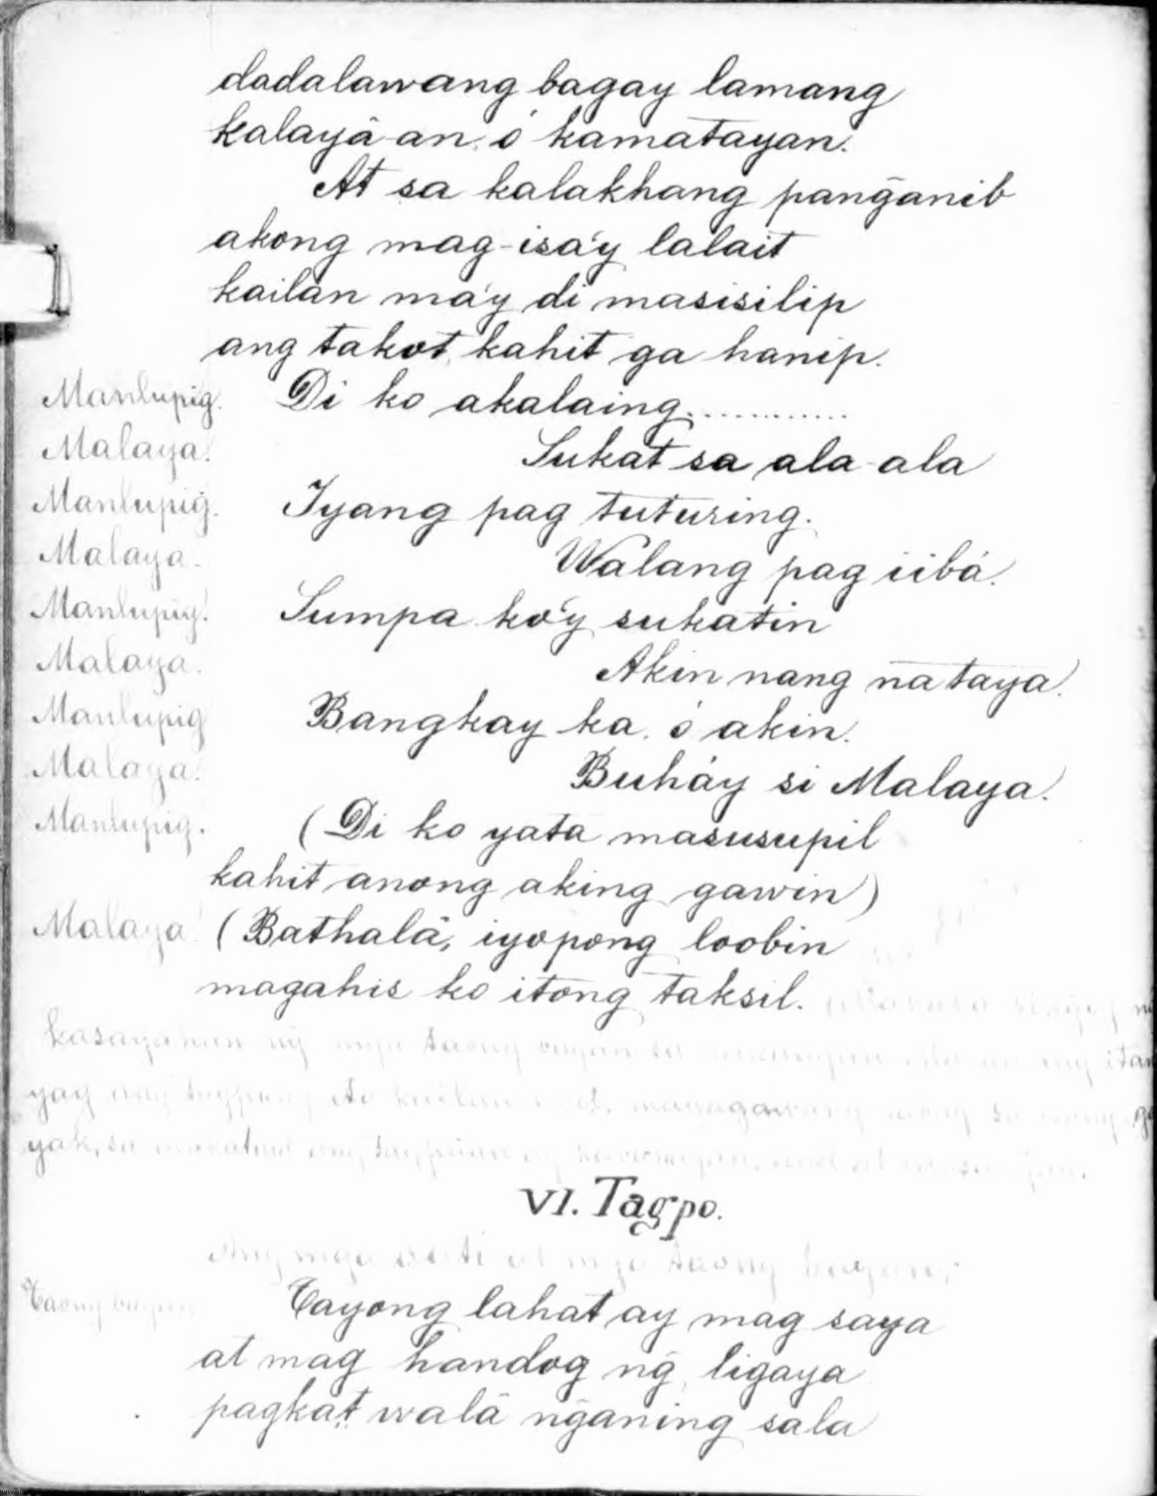 dadalawang bagay lamang
kalayâ-an. ó kamatayan.
At sa kalakhang pang̃anib
akong mag-isa'y lalait
kailán ma'y di masisilip
ang takot, kahit ga hanip.
Manlupig. Di ko akalaing............
Malaya. Sukat sa ala-ala
Manlupig. Iyang pag tuturing.
Malaya. Walang pag iibá.
Manlupig. Sumpa ko'y sukatin
Malaya. Akin nang na taya.
Manlupig Bangkay ka. ó akin.
Malaya. Buháy si Malaya.
Manlupig. (Di ko yata masusupil
kahit anong aking gawin)
Malaya (Bathalâ, iyopong loobin
magahis ko itong taksil.
kasayahan ng mga taong bayan sa
yag ang
yak, sa
VI. Tagpo.
Ang mga at mga taong bayan.
Taong bayan Tayong lahat ay mag saya
at mag handog ng̃ ligaya
pagkat walâ ng̃aning sala